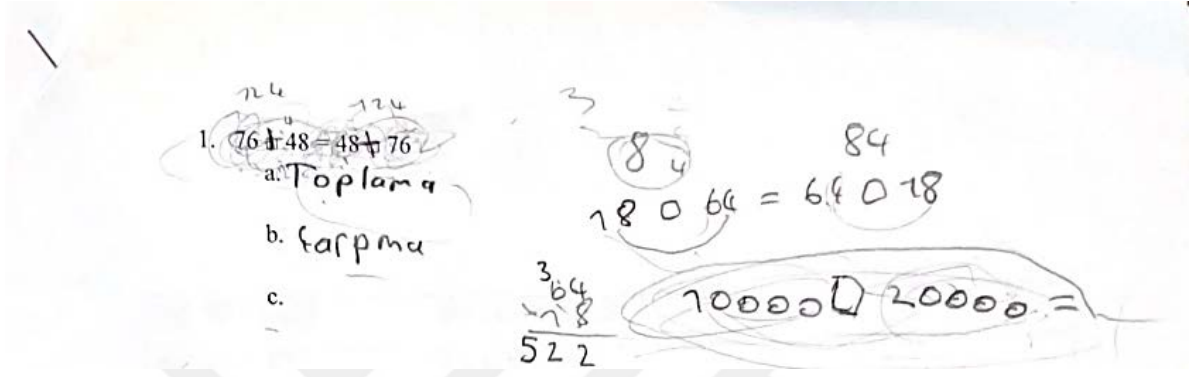 124 124
1. 76 + 48 = 48 + 76
a. Toplama
b. Çarpma
c.
3
8 4
84
18 O 64 = 64 O 18
3
64
x 18
522
10000 □ 20000 =